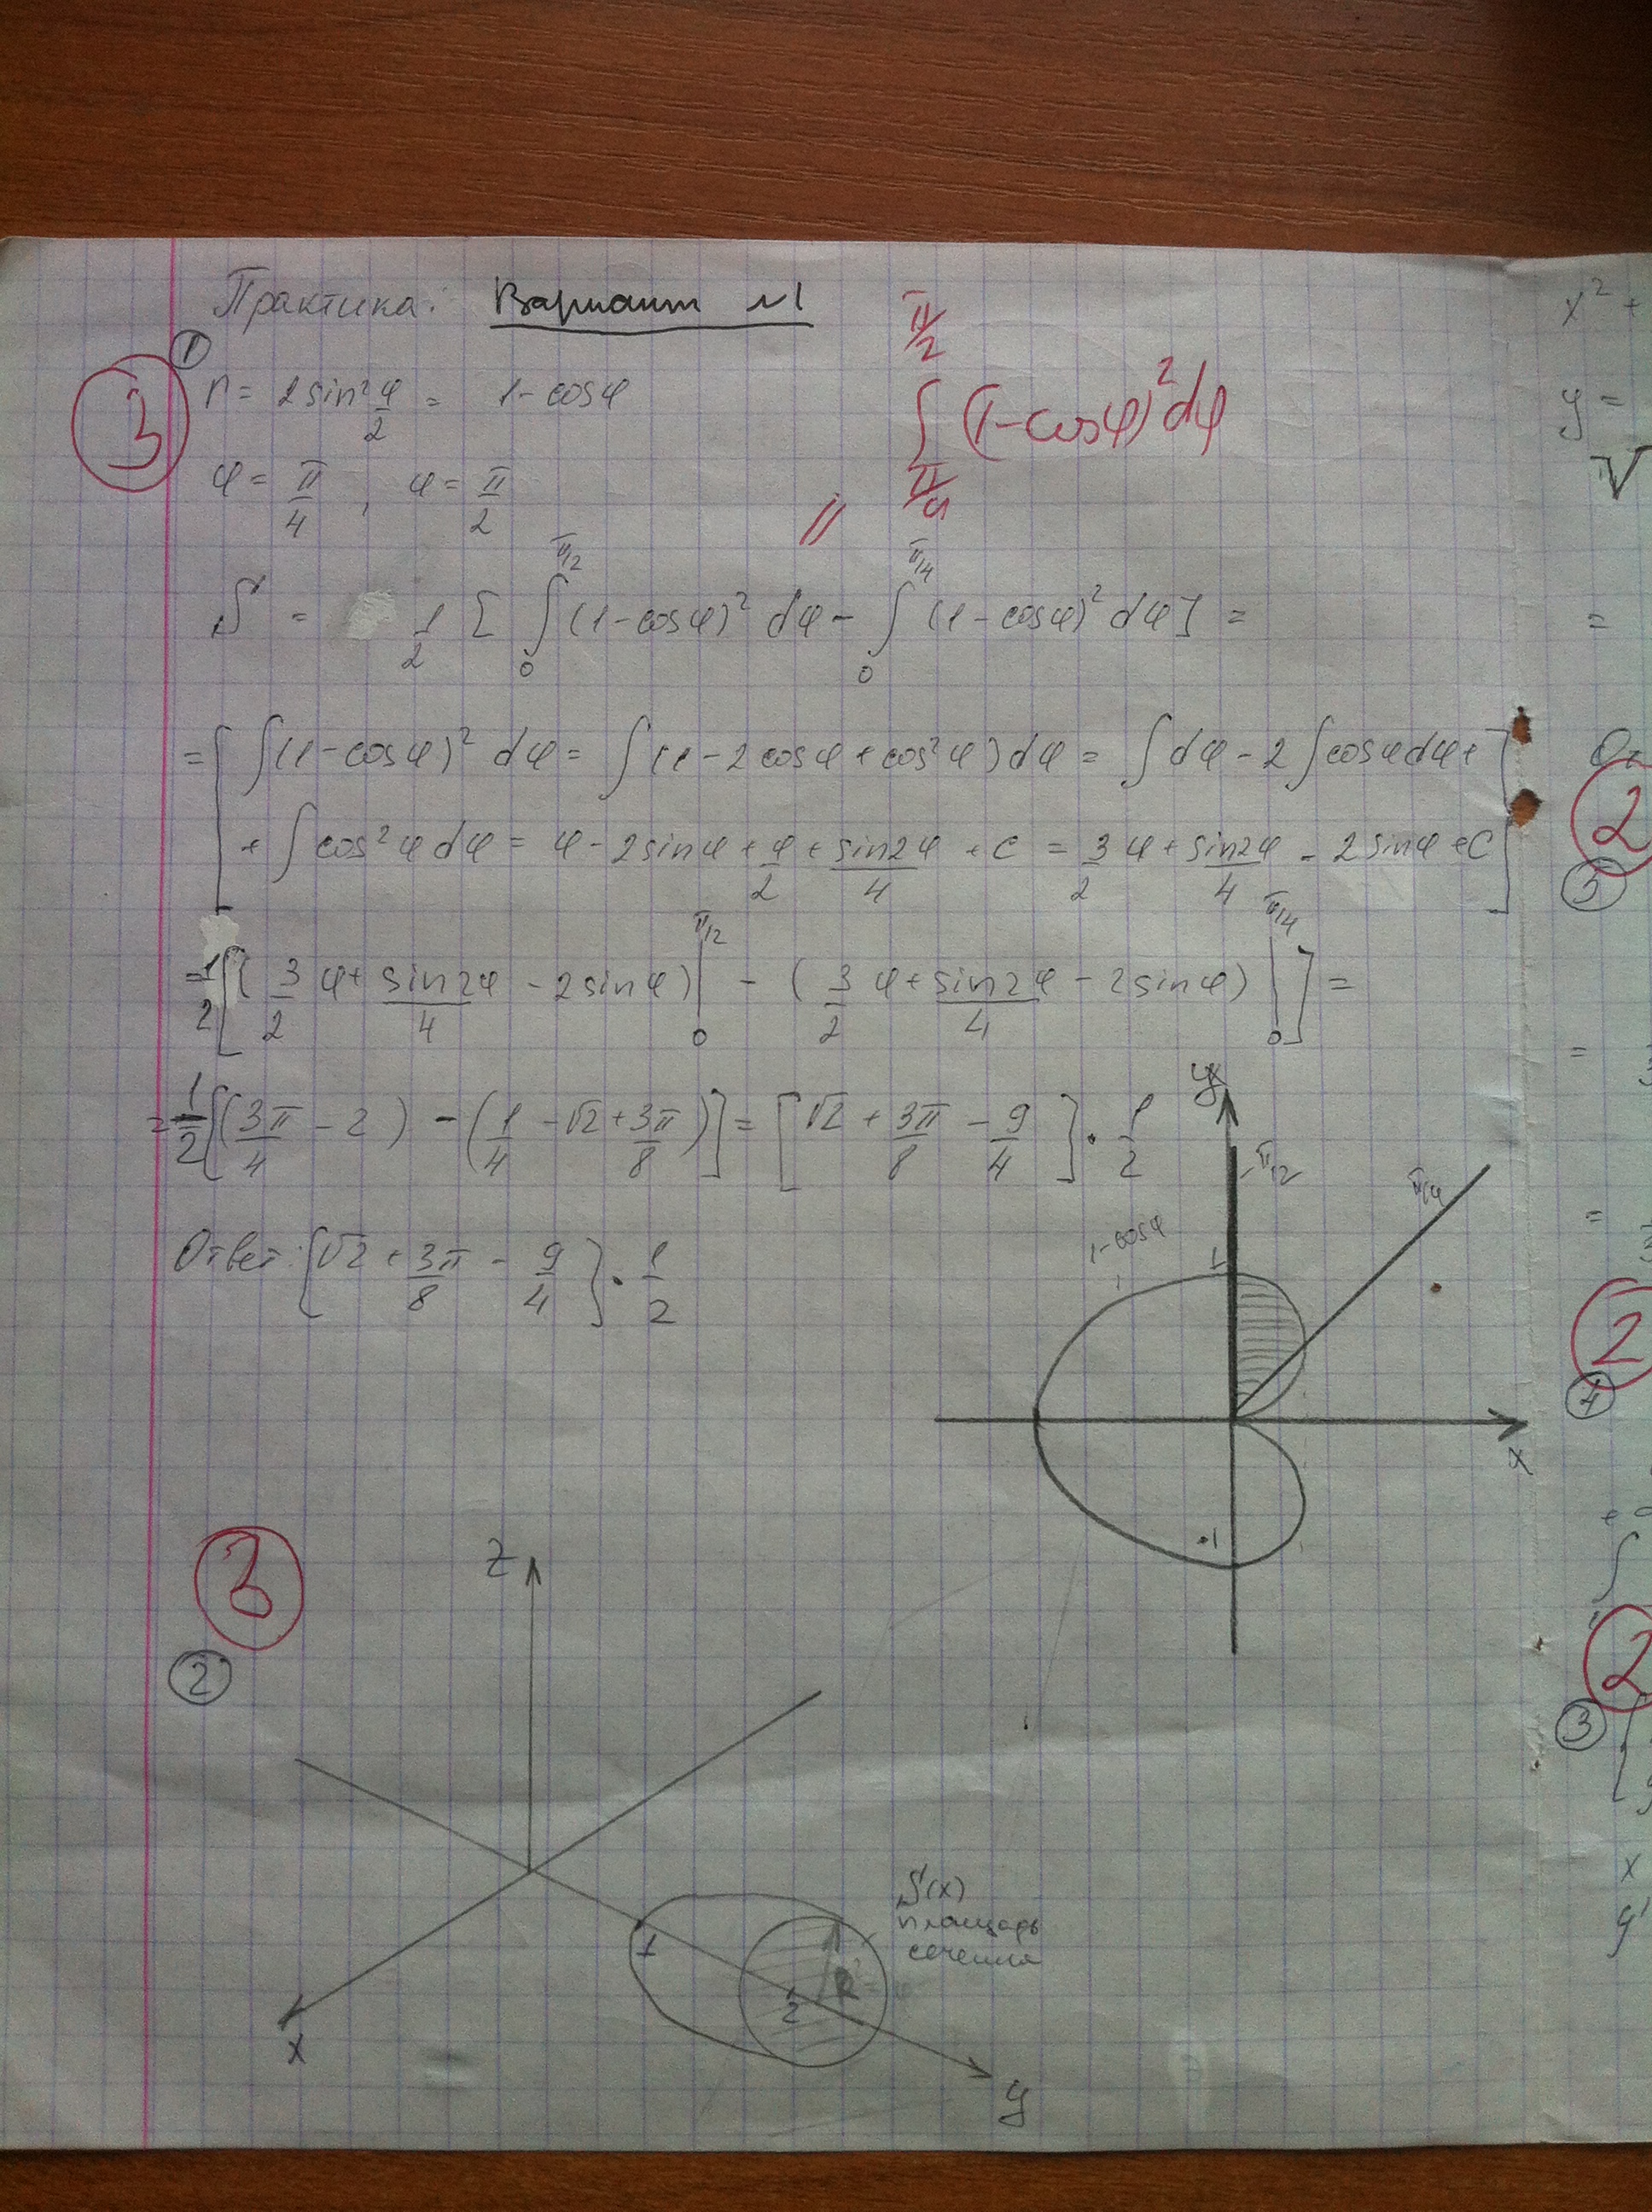 Практика: Вариант №1
①
③ r = 2sin² φ/2 = 1 - cosφ
φ = π/4, φ = π/2
π/2 ∫ π/4 (1-cosφ)² dφ
//
S = 1/2 [ ∫₀^(π/2) (1-cosφ)² dφ - ∫₀^(π/4) (1-cosφ)² dφ ] =
= [ ∫(1-cosφ)² dφ = ∫(1-2cosφ+cos²φ)dφ = ∫dφ - 2∫cosφdφ +
+ ∫cos²φdφ = φ - 2sinφ + φ/2 + sin2φ/4 + C = 3/2 φ + sin2φ/4 - 2sinφ + C ]
= 1/2 [ ( 3/2 φ + sin2φ/4 - 2sinφ) |₀^(π/2) - ( 3/2 φ + sin2φ/4 - 2sinφ) |₀^(π/4) ] =
= 1/2 [ (3π/4 - 2) - (1/4 - √2 + 3π/8) ] = [ √2 + 3π/8 - 9/4 ] · 1/2
Ответ: [ √2 + 3π/8 - 9/4 ] · 1/2
y
π/2
π/4
1-cosφ
1
x
-1
②
z
x
y
1
2
R
S(x)
площадь
сечения
x² +
y =
√
=
От
2
⑤
=
=
2
④
+
∫
2
③
x
y'